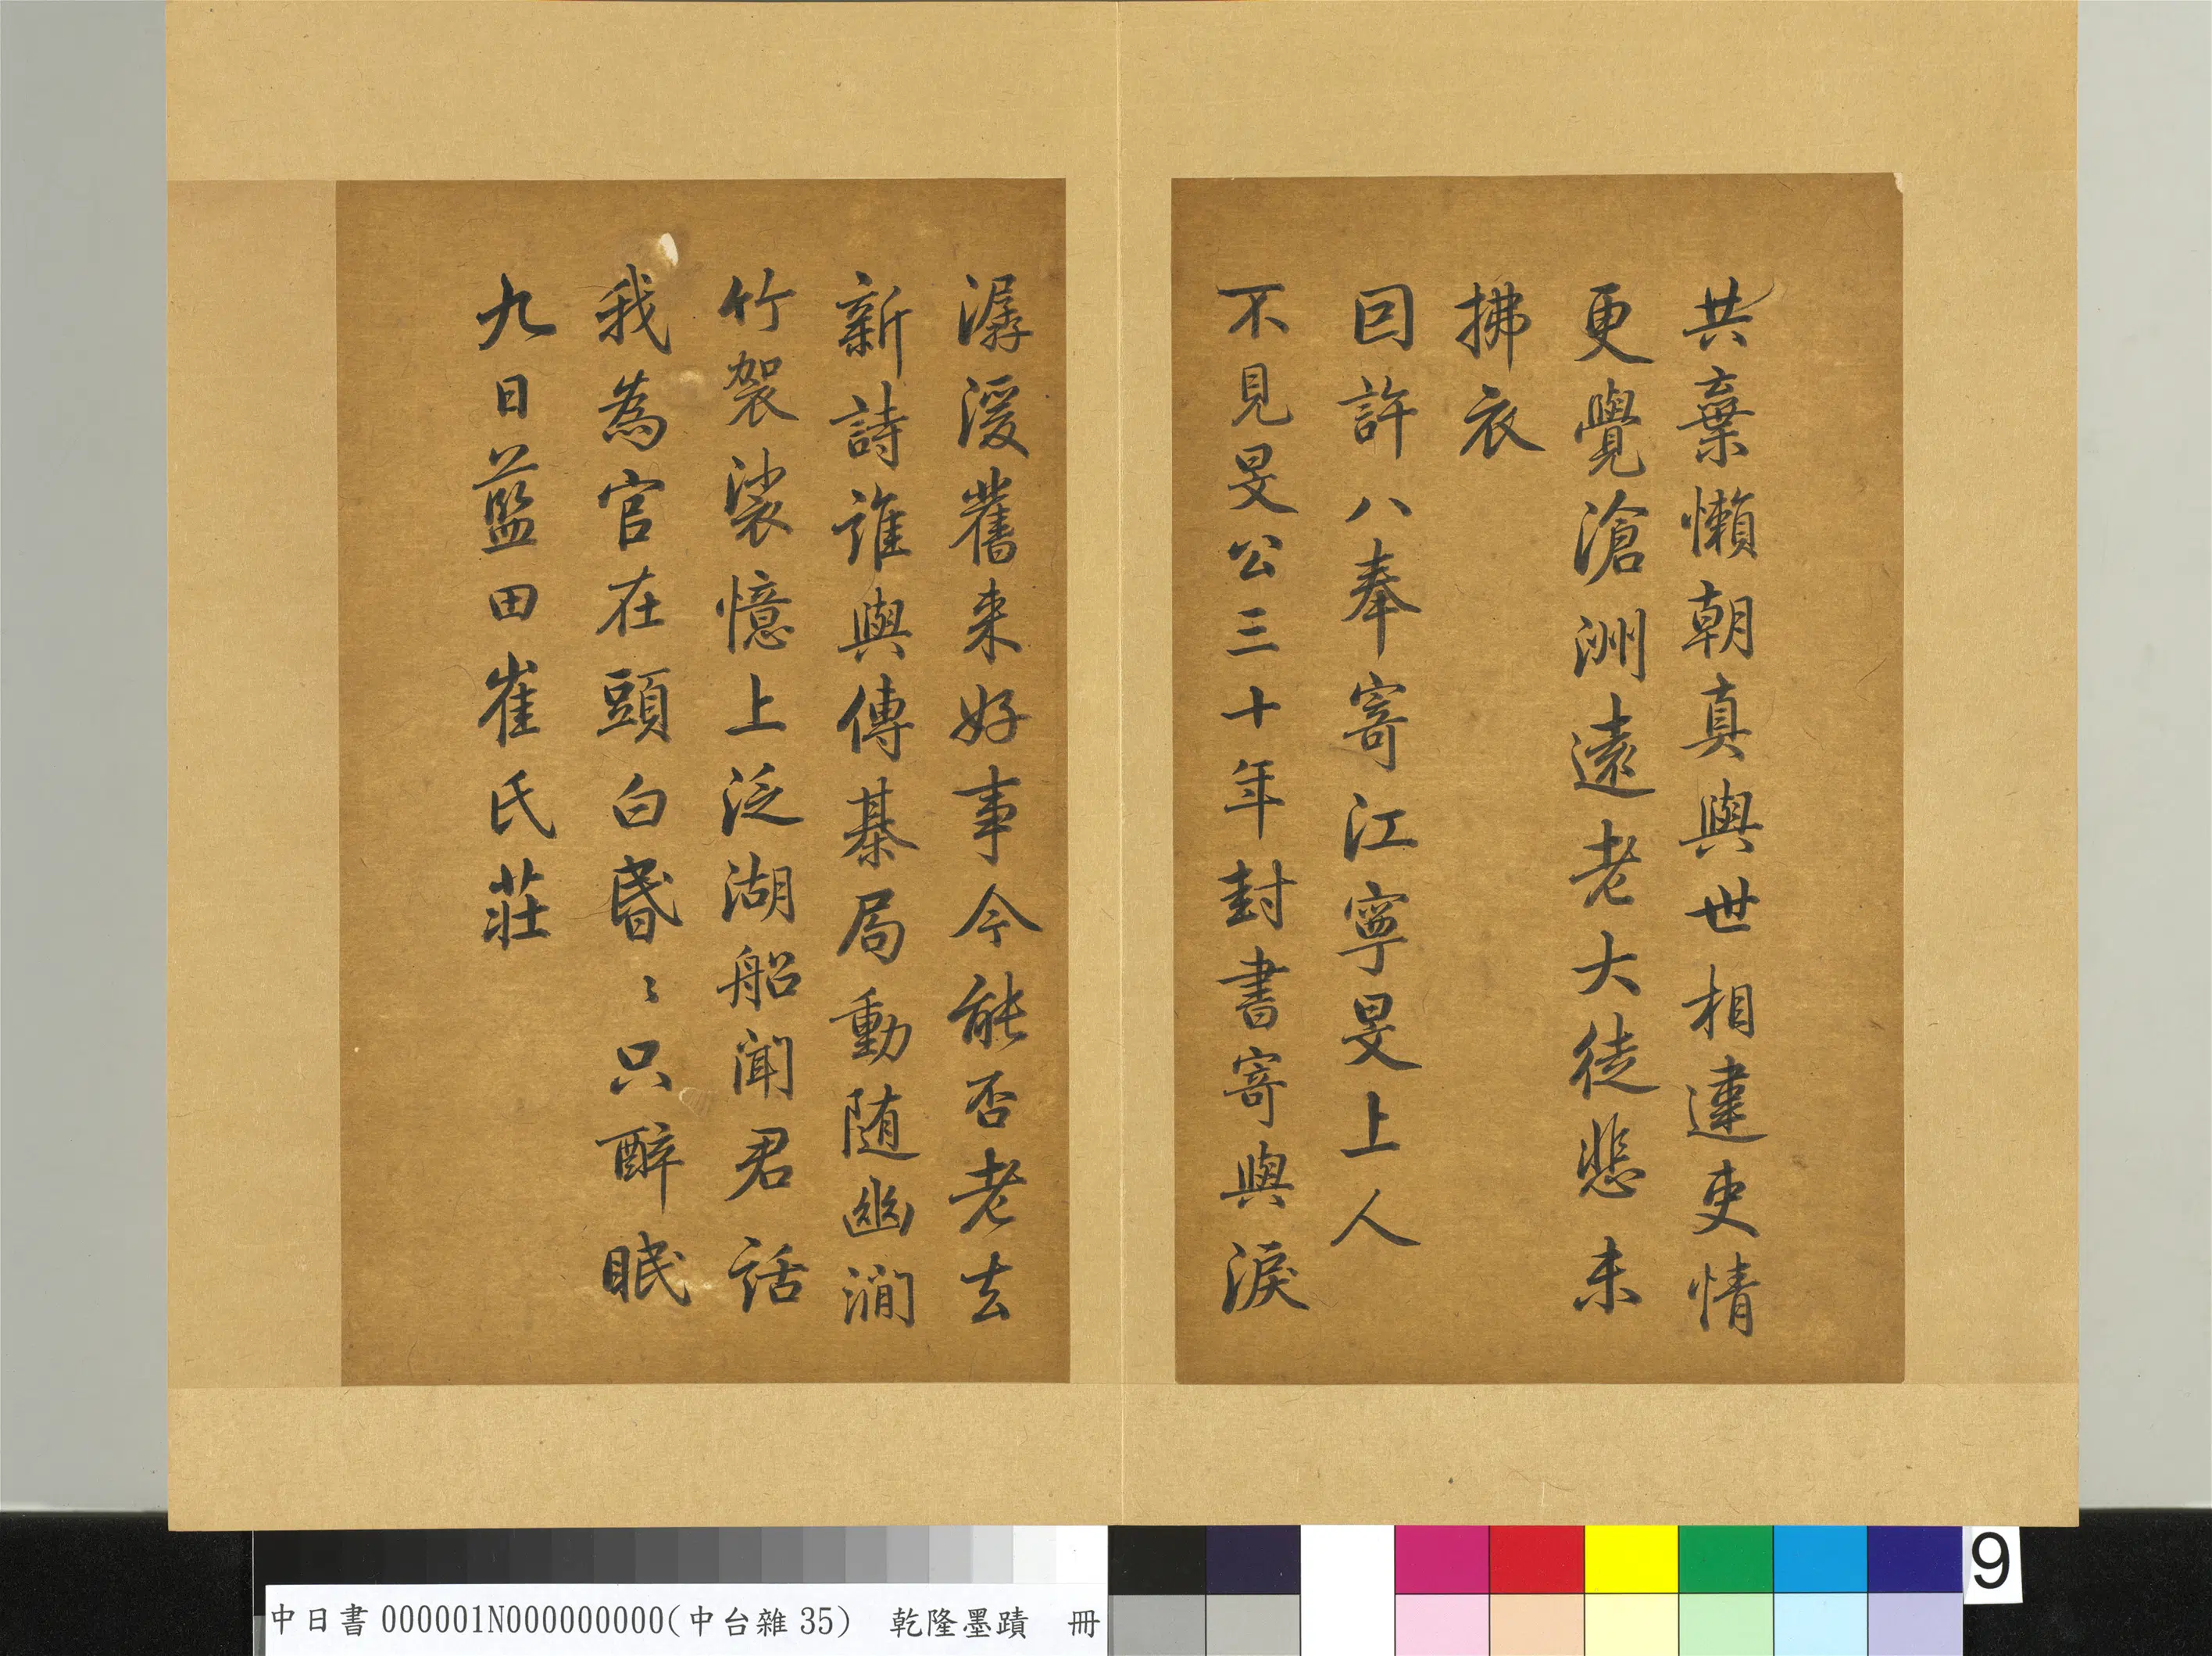 共棄懶朝真與世相違吏情
更覺滄洲遠老大徒悲未
拂衣
因許八奉寄江寧旻上人
不見旻公三十年封書寄與淚
潺湲舊来好事今能否老去
新詩誰與傳棊局動随幽澗
竹袈裟憶上泛湖船聞君話
我為官在頭白昬〻只醉眠
九日藍田崔氏莊
中日書000001N000000000(中台雜35) 乾隆墨蹟 冊
9